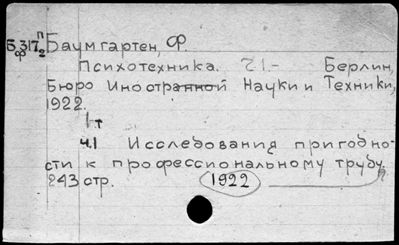 Б 317 п/2 Баумгартен, Ф.
Психотехника. Ч1.— Берлин,
Бюро Иностранной Науки и Техники,
1922.
1т
ч.1 Исследования пригодно-
сти к профессиональному труду.
243 стр. 1922